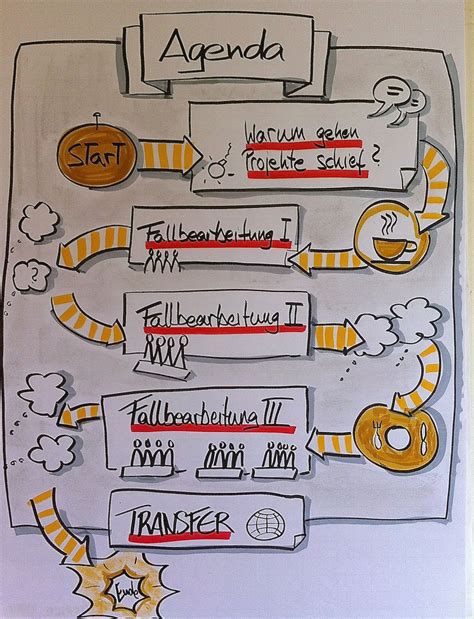 Agenda
START
Warum gehen
Projekte schief?
Fallbearbeitung I
?
Fallbearbeitung II
Fallbearbeitung III
TRANSFER
Ende